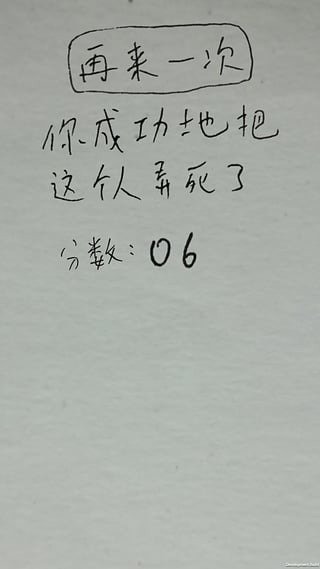 再来一次
你成功地把
这个人弄死了
分数：06
Development Build